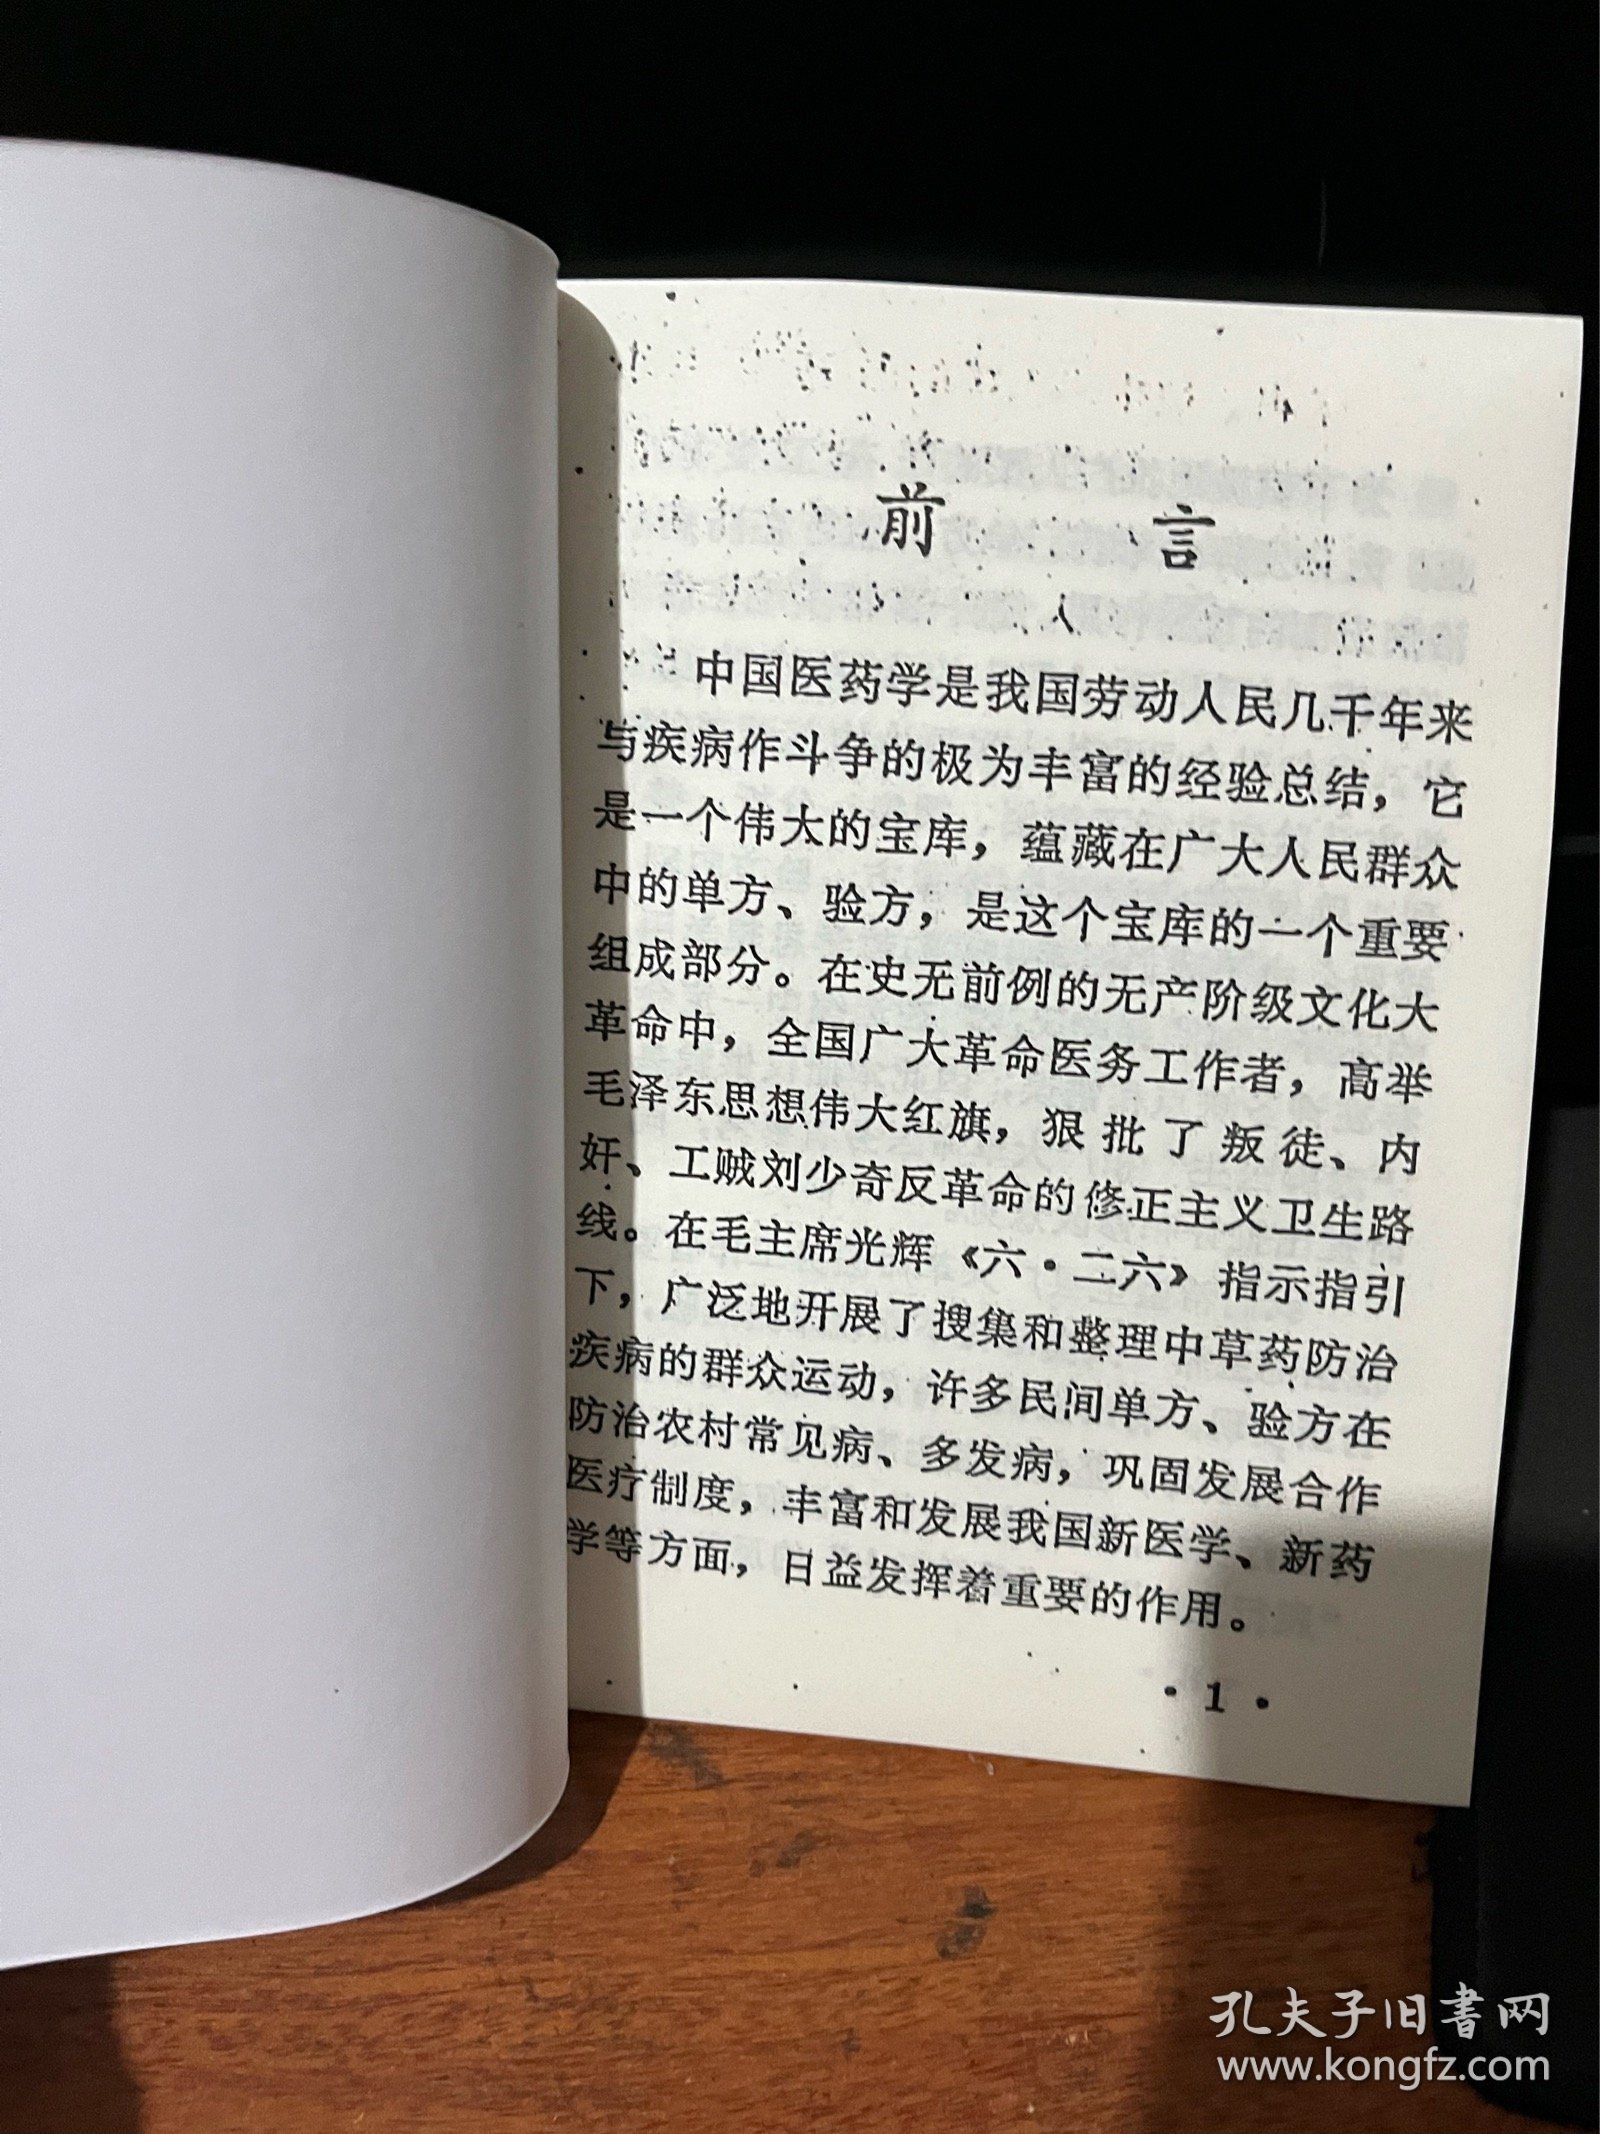 前言
中国医药学是我国劳动人民几千年来
与疾病作斗争的极为丰富的经验总结，它
是一个伟大的宝库，蕴藏在广大人民群众
中的单方、验方，是这个宝库的一个重要
组成部分。在史无前例的无产阶级文化大
革命中，全国广大革命医务工作者，高举
毛泽东思想伟大红旗，狠批了叛徒、内
奸、工贼刘少奇反革命的修正主义卫生路
线。在毛主席光辉《六·二六》指示指引
下，广泛地开展了搜集和整理中草药防治
疾病的群众运动，许多民间单方、验方在
防治农村常见病、多发病，巩固发展合作
医疗制度，丰富和发展我国新医学、新药
学等方面，日益发挥着重要的作用。
·1·
孔夫子旧書网
www.kongfz.com